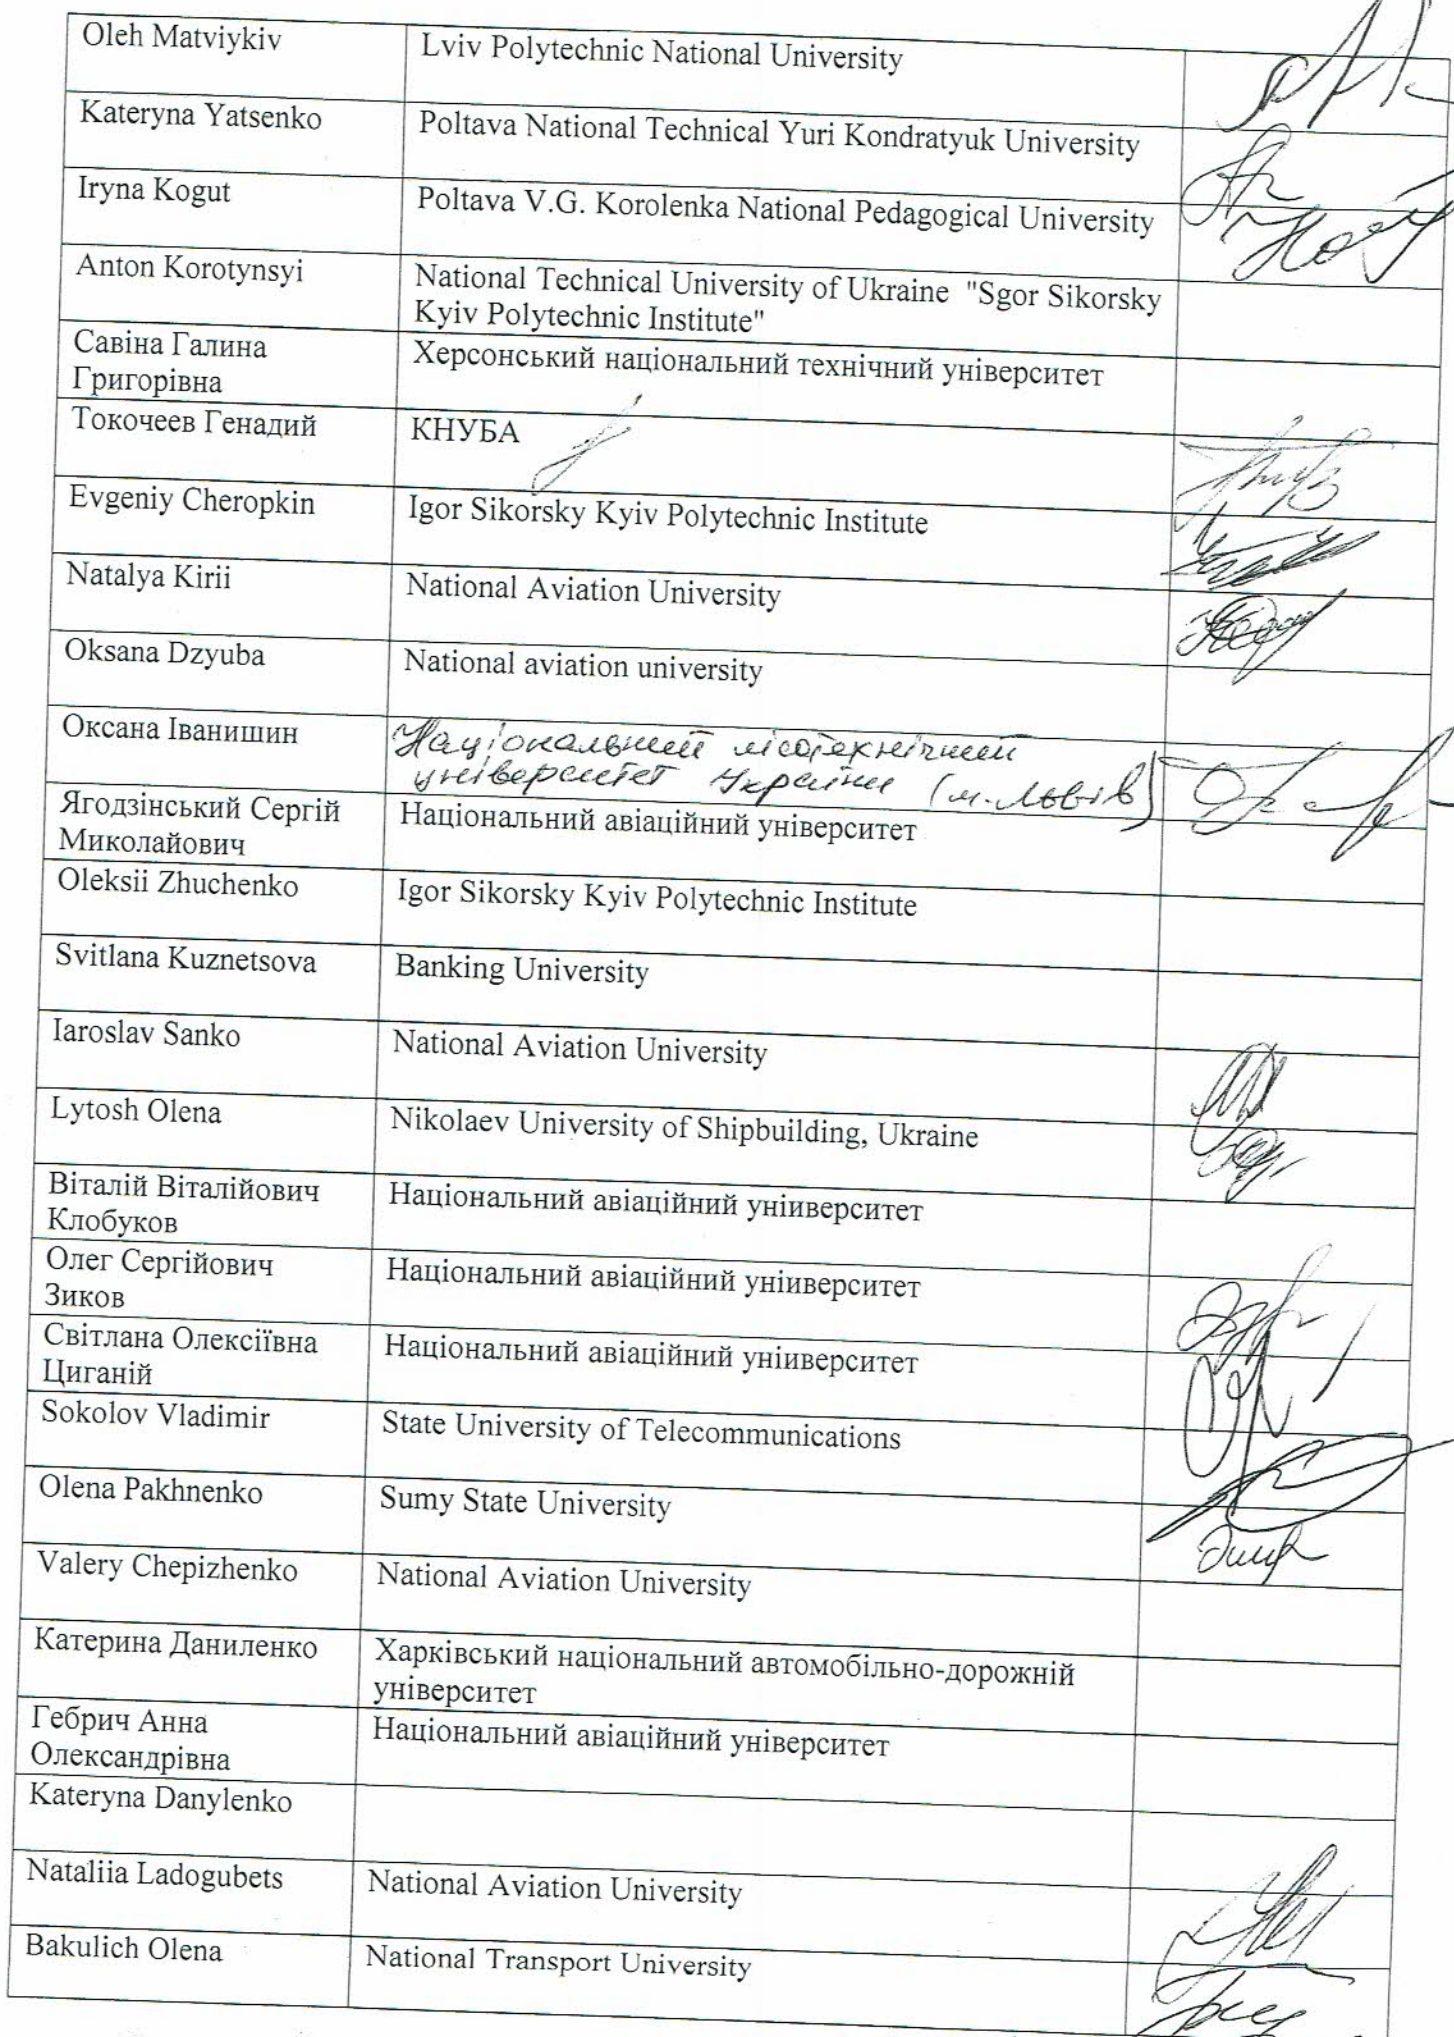 Oleh Matviykiv
Lviv Polytechnic National University
Kateryna Yatsenko
Poltava National Technical Yuri Kondratyuk University
Iryna Kogut
Poltava V.G. Korolenka National Pedagogical University
Anton Korotynsyi
National Technical University of Ukraine "Sgor Sikorsky
Kyiv Polytechnic Institute"
Савіна Галина
Григорівна
Херсонський національний технічний університет
Токочеев Генадий
КНУБА
Evgeniy Cheropkin
Igor Sikorsky Kyiv Polytechnic Institute
Natalya Kirii
National Aviation University
Oksana Dzyuba
National aviation university
Оксана Іванишин
Національний лісотехнічний
університет України (м. Львів)
Ягодзінський Сергій
Миколайович
Національний авіаційний університет
Oleksii Zhuchenko
Igor Sikorsky Kyiv Polytechnic Institute
Svitlana Kuznetsova
Banking University
Iaroslav Sanko
National Aviation University
Lytosh Olena
Nikolaev University of Shipbuilding, Ukraine
Віталій Віталійович
Клобуков
Національний авіаційний уніиверситет
Олег Сергійович
Зиков
Національний авіаційний уніиверситет
Світлана Олексіївна
Циганій
Національний авіаційний уніиверситет
Sokolov Vladimir
State University of Telecommunications
Olena Pakhnenko
Sumy State University
Valery Chepizhenko
National Aviation University
Катерина Даниленко
Харківський національний автомобільно-дорожній
університет
Гебрич Анна
Олександрівна
Національний авіаційний університет
Kateryna Danylenko
Nataliia Ladogubets
National Aviation University
Bakulich Olena
National Transport University